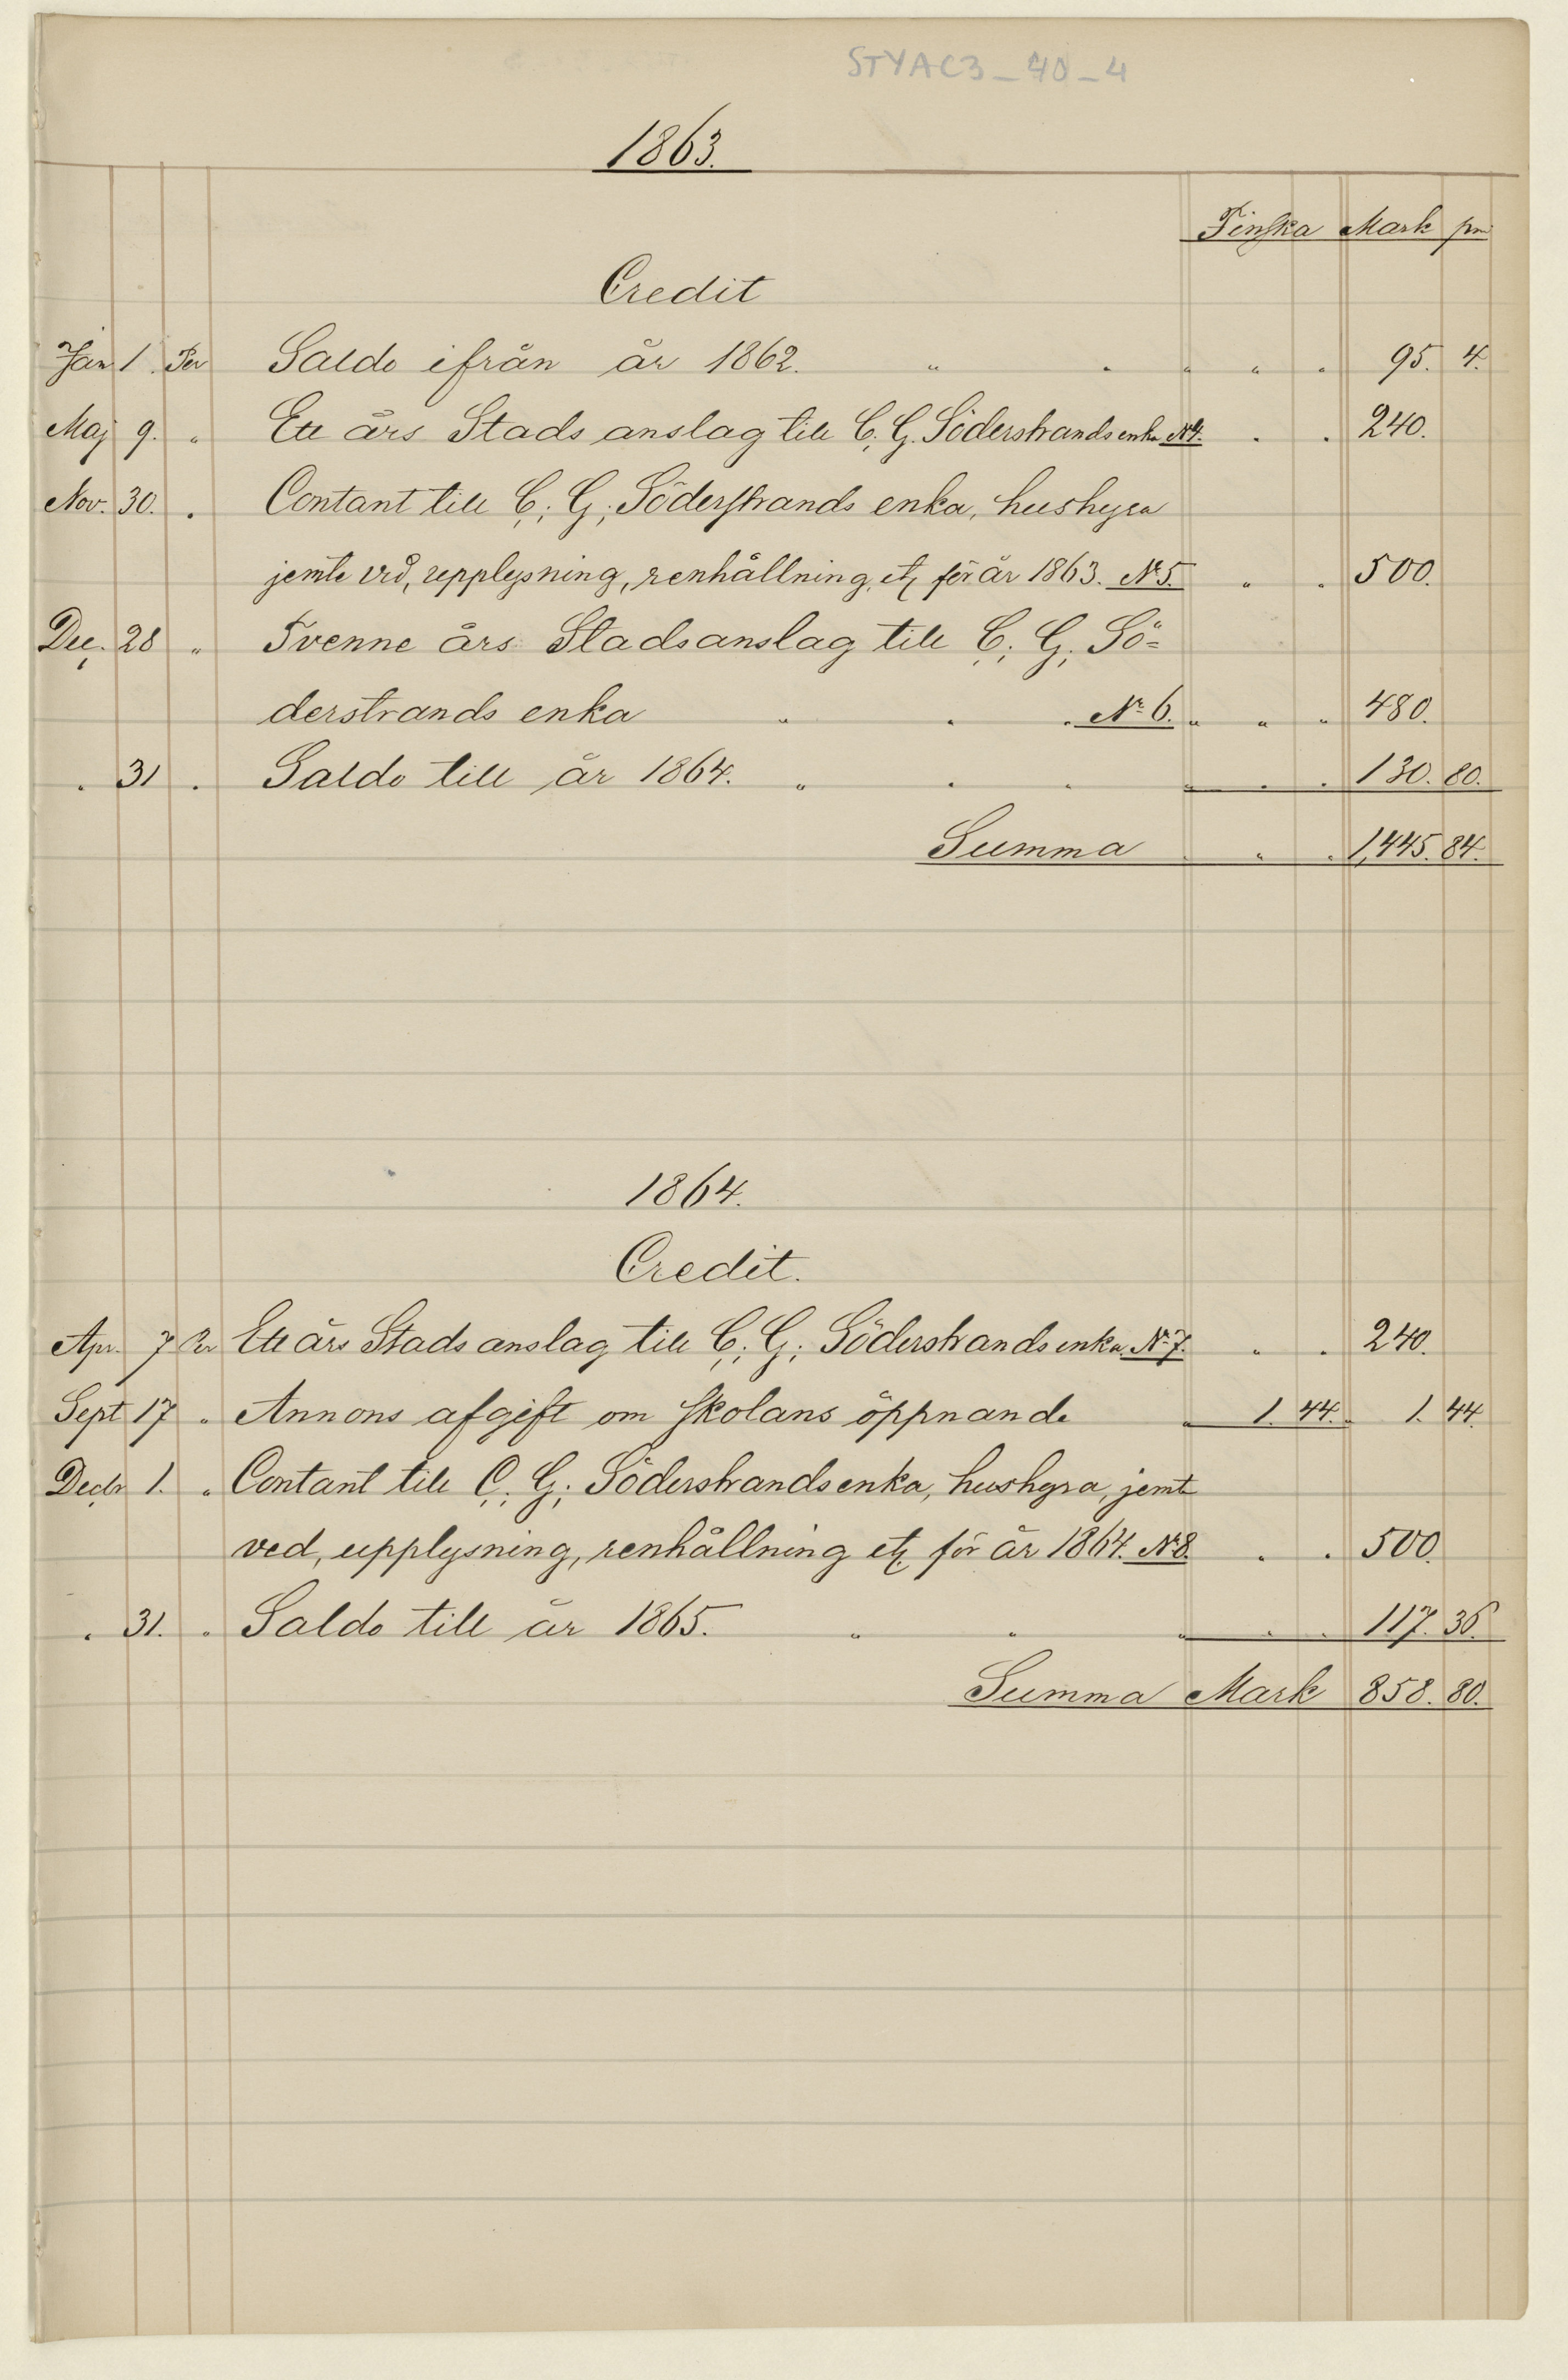 STYAC3_40_4
1863.
Finska Mark pni
Credit
Jan 1. Per Saldo ifrån år 1862. " " " " " 95. 4.
Maj 9. " Ett års Stads anslag till C. G. Söderstrands enka No 4. " " 240.
Nov. 30. " Contant till C. G. Söderstrands enka, hushyra
jemte ved, upplysning, renhållning, etc för år 1863. No 5. " " 500.
Dec. 28 " Tvenne års Stadsanslag till C. G. Sö=
derstrands enka " " " No 6. " " " 480.
" 31 " Saldo till år 1864. " " " " " " 130. 80.
Summa " " " 1,445. 84.
1864.
Credit.
Apr. 7 Per Ett års Stads anslag till C. G. Söderstrands enka. No 7. " " 240.
Sept 17 " Annons afgift om skolans öppnande " 1. 44. " 1. 44.
Decbr 1. " Contant till C. G. Söderstrands enka, hushyra, jemte
ved, upplysning, renhållning etc för år 1864. No 8. " " 500.
" 31. " Saldo till år 1865. " " " " " 117. 36.
Summa Mark 858. 80.